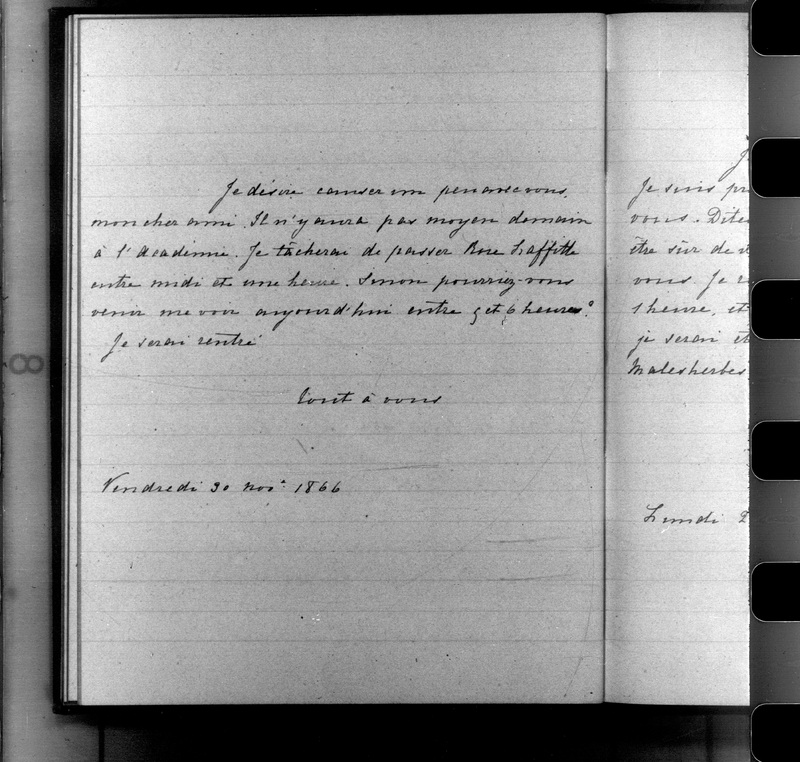 Je désire causer un peu avec vous,
mon cher ami. Il n'y aura pas moyen demain
à l'académie. Je tâcherai de passer Rue Laffitte
entre midi et une heure. Sinon pourriez-vous
venir me voir aujourd'hui entre 5 et 6 heures?
Je serai rentré
Tout à vous
Vendredi 30 nov. 1866
Je suis
vous. Dites
être sûr de
vous. Je
1 heure, et
je serai
Malesherbes
Lundi
8